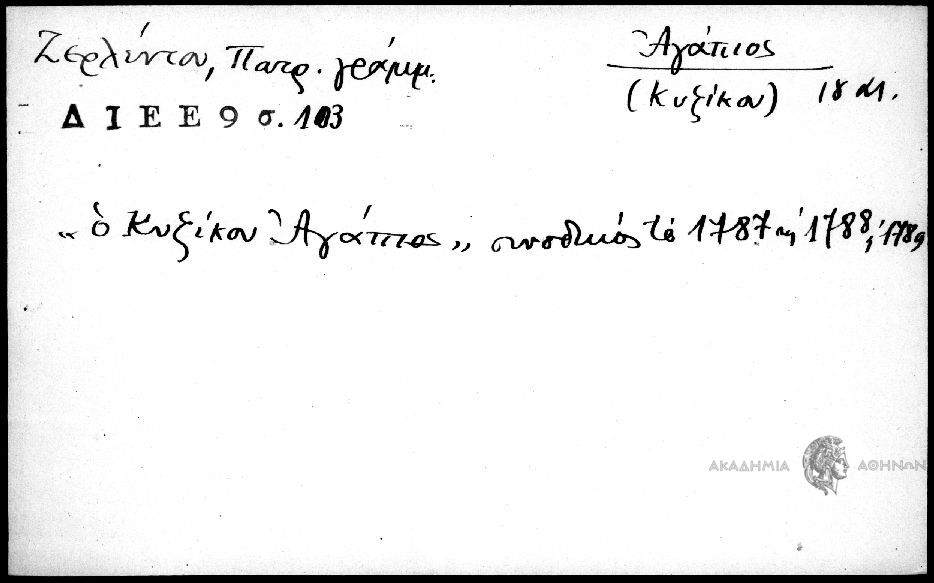 Ζερλέντου, Πατρ. γράμμ.
Ἀγάπιος
(Κυζίκου) 18 αι.
Δ Ι Ε Ε 9 σ. 103
„ὁ Κυζίκου Ἀγάπιος„ συνοδικός τό 1787 καί 1788, 1789
ΑΚΑΔΗΜΙΑ ΑΘΗΝΩΝ